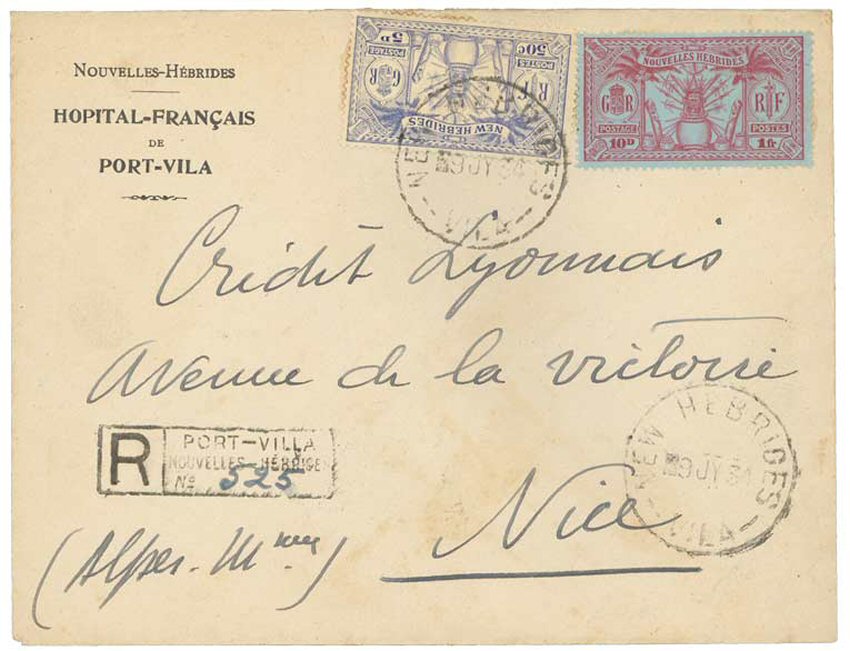 NOUVELLES-HÉBRIDES
HOPITAL-FRANÇAIS
DE
PORT-VILA
5D 50c
POSTAGE POSTES
G R R F
NEW HEBRIDES
NOUVELLES HÉBRIDES
G R R F
POSTAGE POSTES
10D 1fr.
NEW HEBRIDES
9 JY 34
VILA
Crédit Lyonnais
Avenue de la victoire
R
PORT-VILLA
NOUVELLES-HÉBRIDES
No 525
NEW HEBRIDES
9 JY 34
VILA
Nice
(Alpes. Mmes)